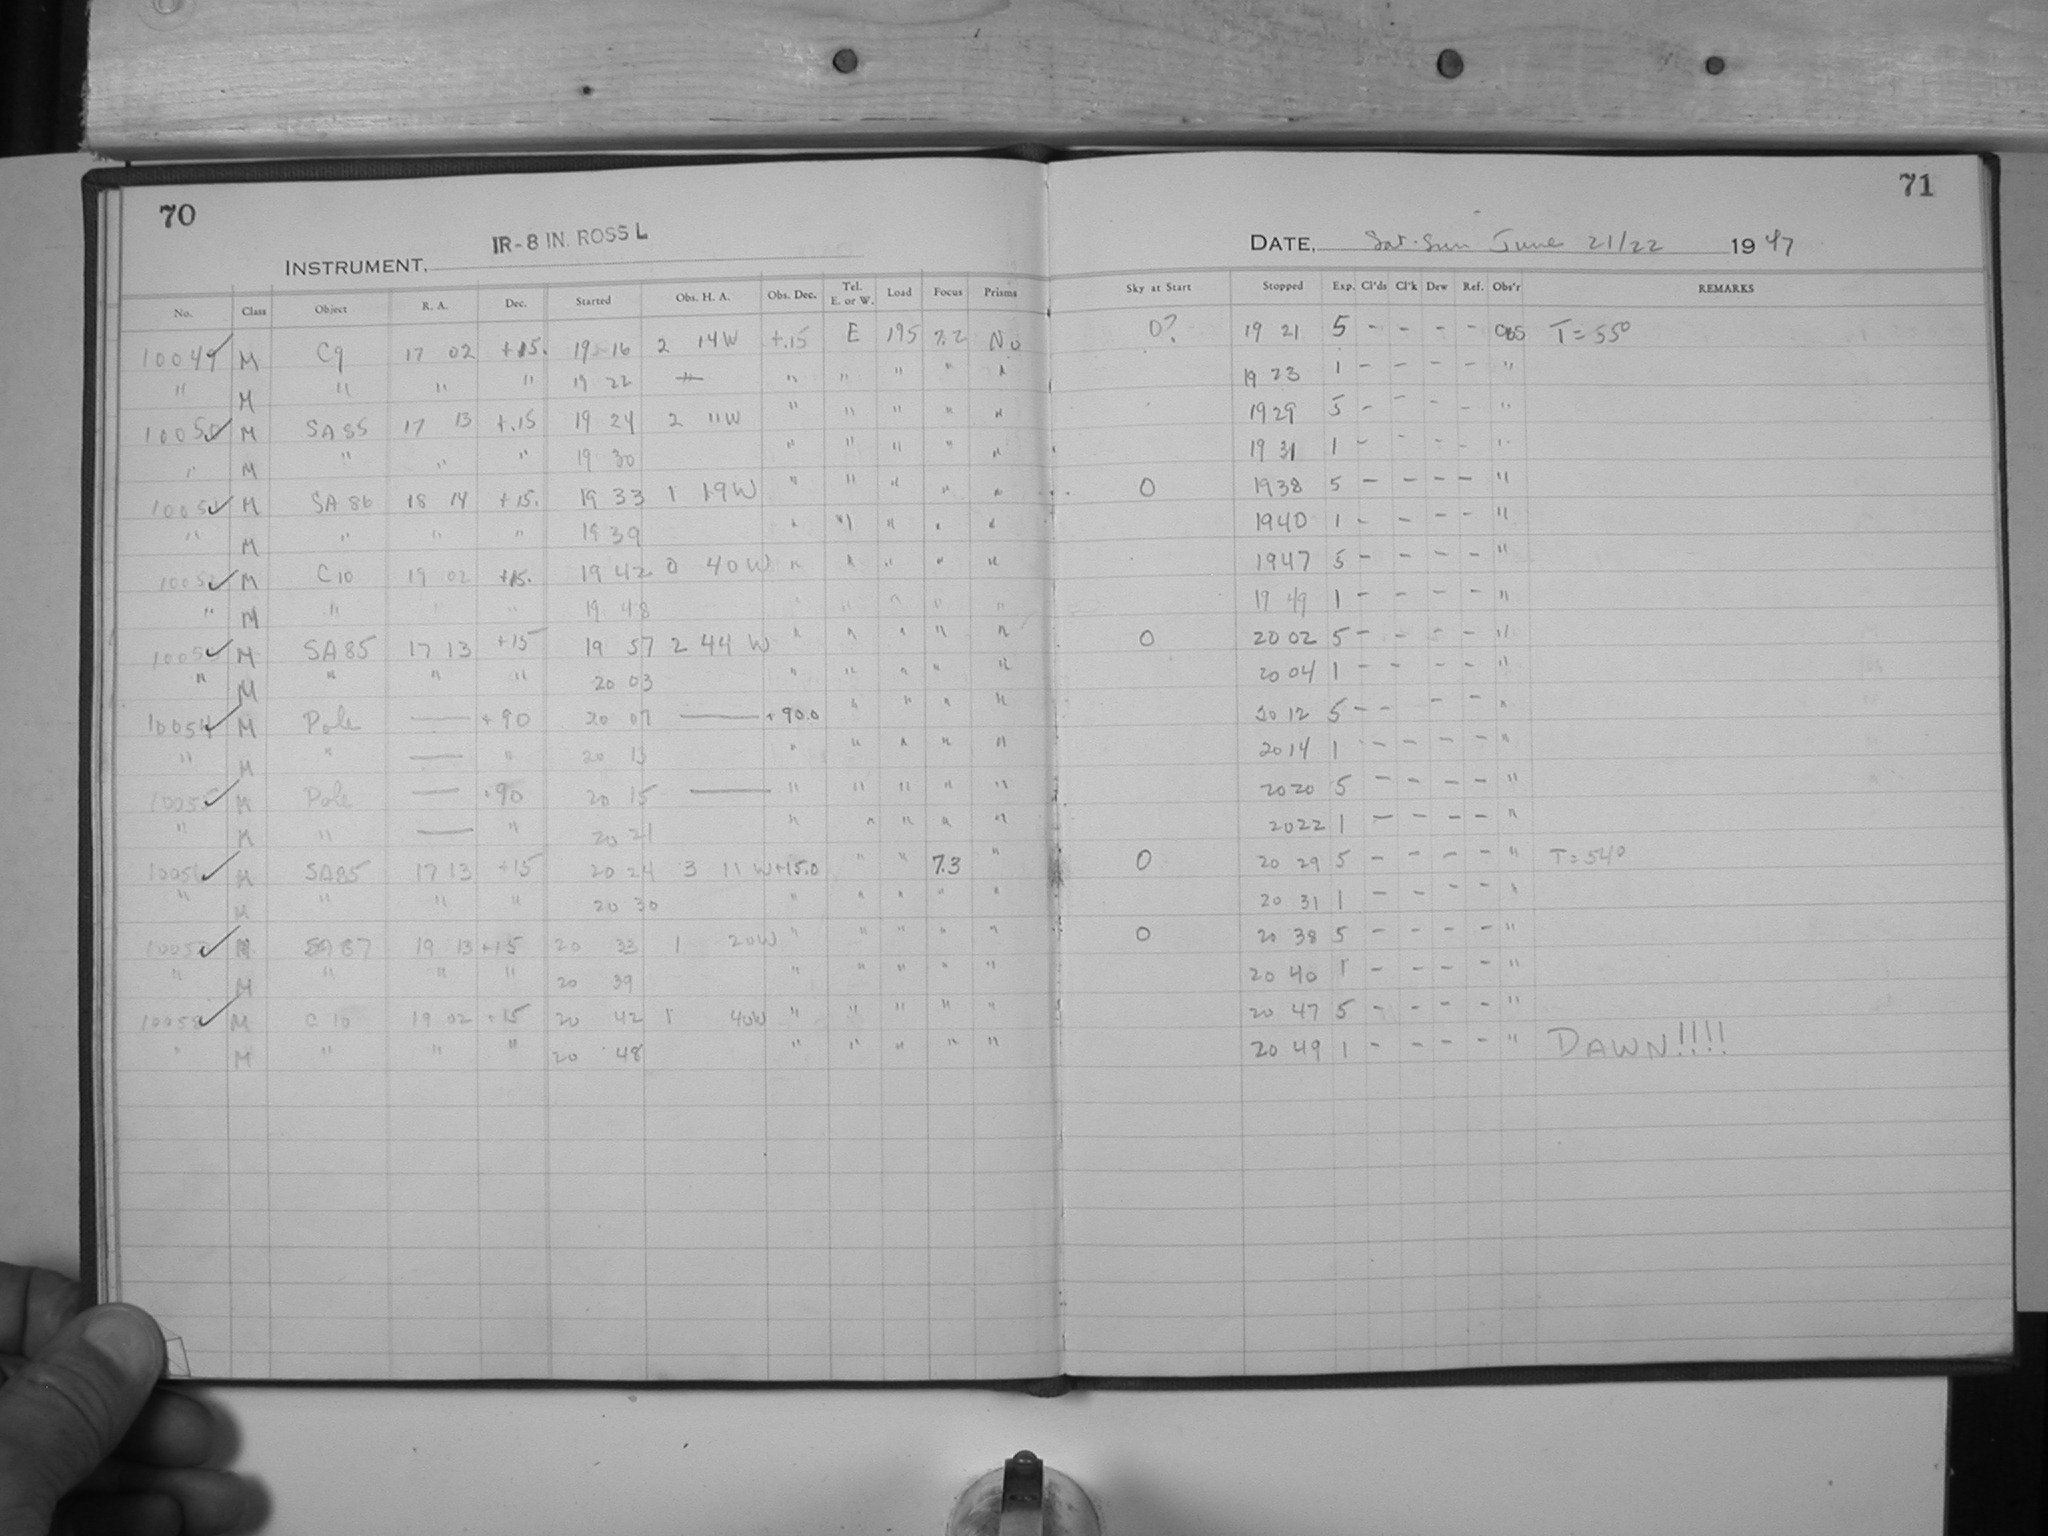 70
IR-8 IN. ROSS L
INSTRUMENT,
No. Class Object R. A. Dec. Started Obs. H. A. Obs. Dec. Tel. E. or W. Load Focus Prisms
10049 M C9 17 02 +15. 19 16 2 14W +.15 E 195 7.2 No
" M " " " 19 22 " " " " "
10050 M SA85 17 13 +.15 19 24 2 11W " " " " "
" M " " " 19 30 " " " " "
10051 M SA86 18 14 +15. 19 33 1 19W " " " " "
" M " " " 19 39 " " " " "
10052 M C10 19 02 +15. 19 42 0 40W " " " " "
" M " " " 19 48 " " " " "
10053 M SA85 17 13 +15 19 57 2 44 W " " " " "
" M " " " 20 03 " " " " "
10054 M Pole — +90 20 07 — +90.0 " " " "
" M " — " 20 13 " " " " "
10055 M Pole — +90 20 15 — " " " " "
" M " — " 20 21 " " " " "
10056 M SA85 17 13 +15 20 24 3 11 W +15.0 " " 7.3 "
" M " " " 20 30 " " " " "
10057 M SA87 19 13 +15 20 33 1 20W " " " " "
" M " " " 20 39 " " " " "
10058 M C10 19 02 +15 20 42 1 40W " " " " "
" M " " " 20 48 " " " " "
71
DATE, Sat-Sun June 21/22 1947
Sky at Start Stopped Exp. Cl'ds Cl'k Dew Ref. Obs'r REMARKS
0? 19 21 5 - - - - CBS T = 55°
19 23 1 - - - - "
19 29 5 - - - - "
19 31 1 - - - - "
0 19 38 5 - - - - "
19 40 1 - - - - "
19 47 5 - - - - "
19 49 1 - - - - "
0 20 02 5 - - - - "
20 04 1 - - - - "
20 12 5 - - - - "
20 14 1 - - - - "
20 20 5 - - - - "
20 22 1 - - - - "
0 20 29 5 - - - - " T = 54°
20 31 1 - - - - "
0 20 38 5 - - - - "
20 40 1 - - - - "
20 47 5 - - - - "
20 49 1 - - - - " DAWN!!!!